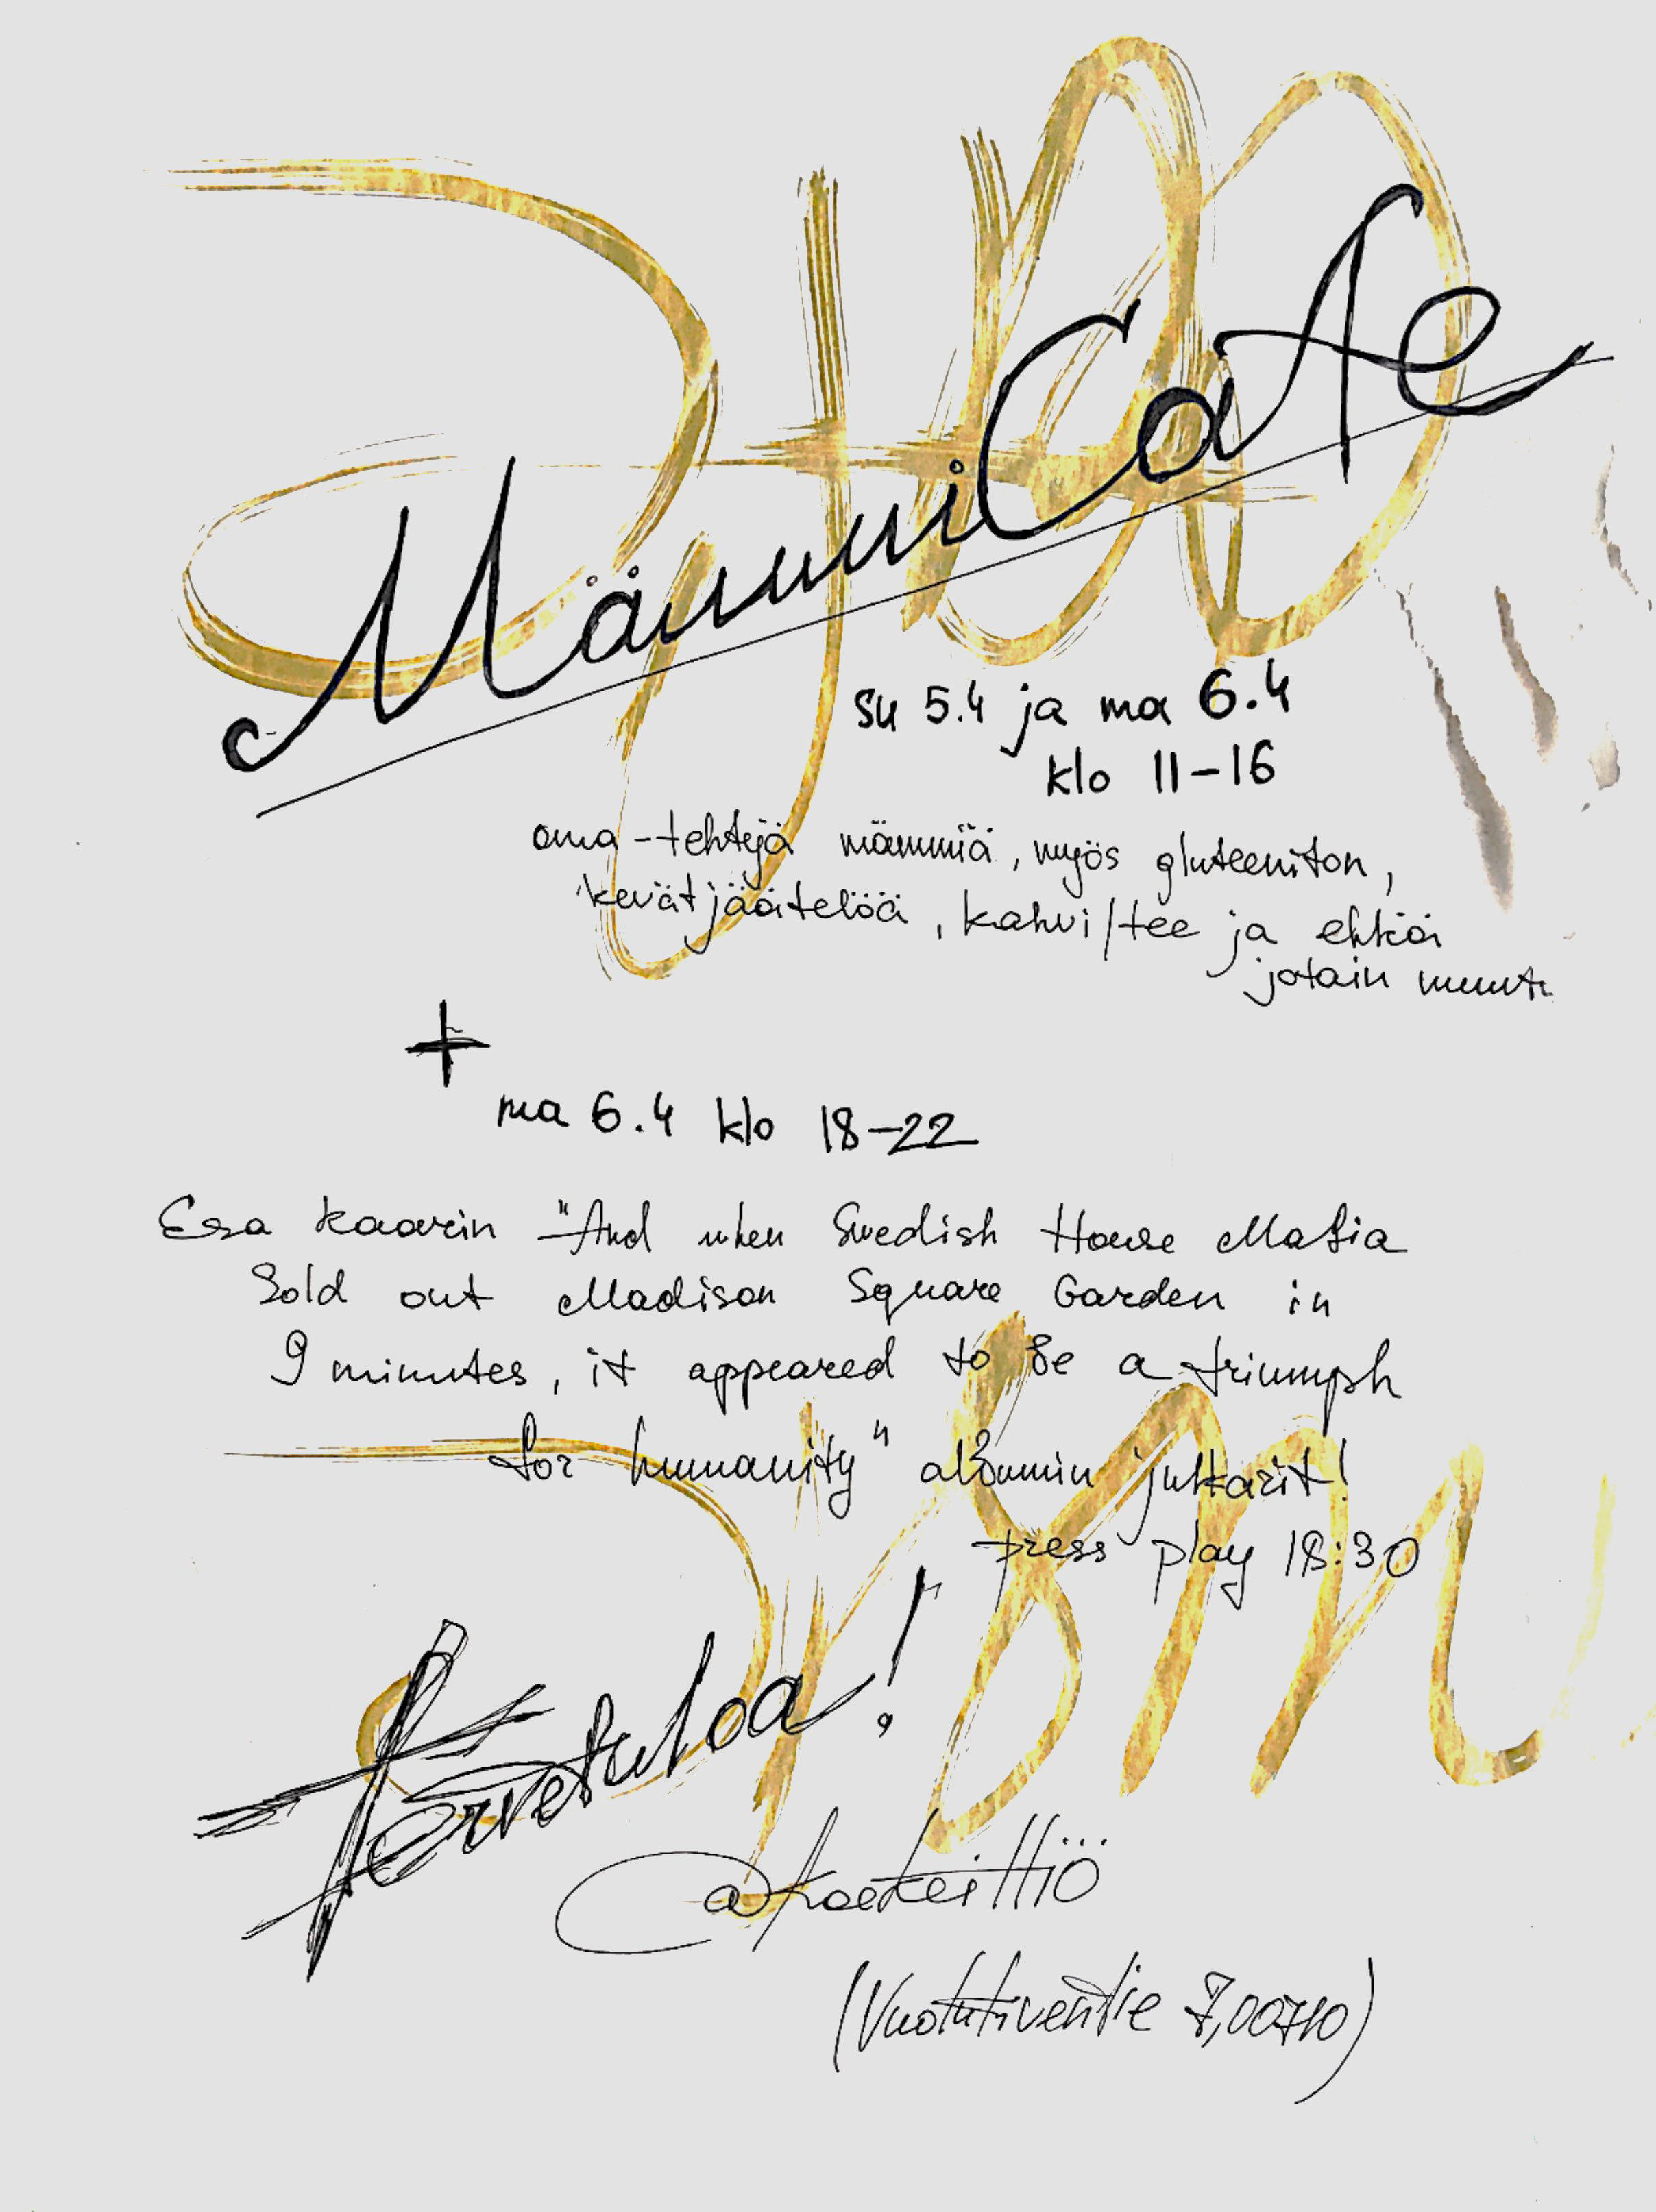 MämmiCafe
su 5.4 ja ma 6.4
klo 11-16
oma-tehtyjä mämmiä, myös gluteeniton,
kevät jäätelöä, kahvi/tee ja ehkä
jotain muuta
+
ma 6.4 klo 18-22
Esa Kaarin "And when Swedish House Mafia
Sold out Madison Square Garden in
9 minutes, it appeared to be a triumph
for humanity" albumin julkarit!
press play 18:30
Tervetuloa!
@koekeittiö
(Vuotutiventie 7,00710)